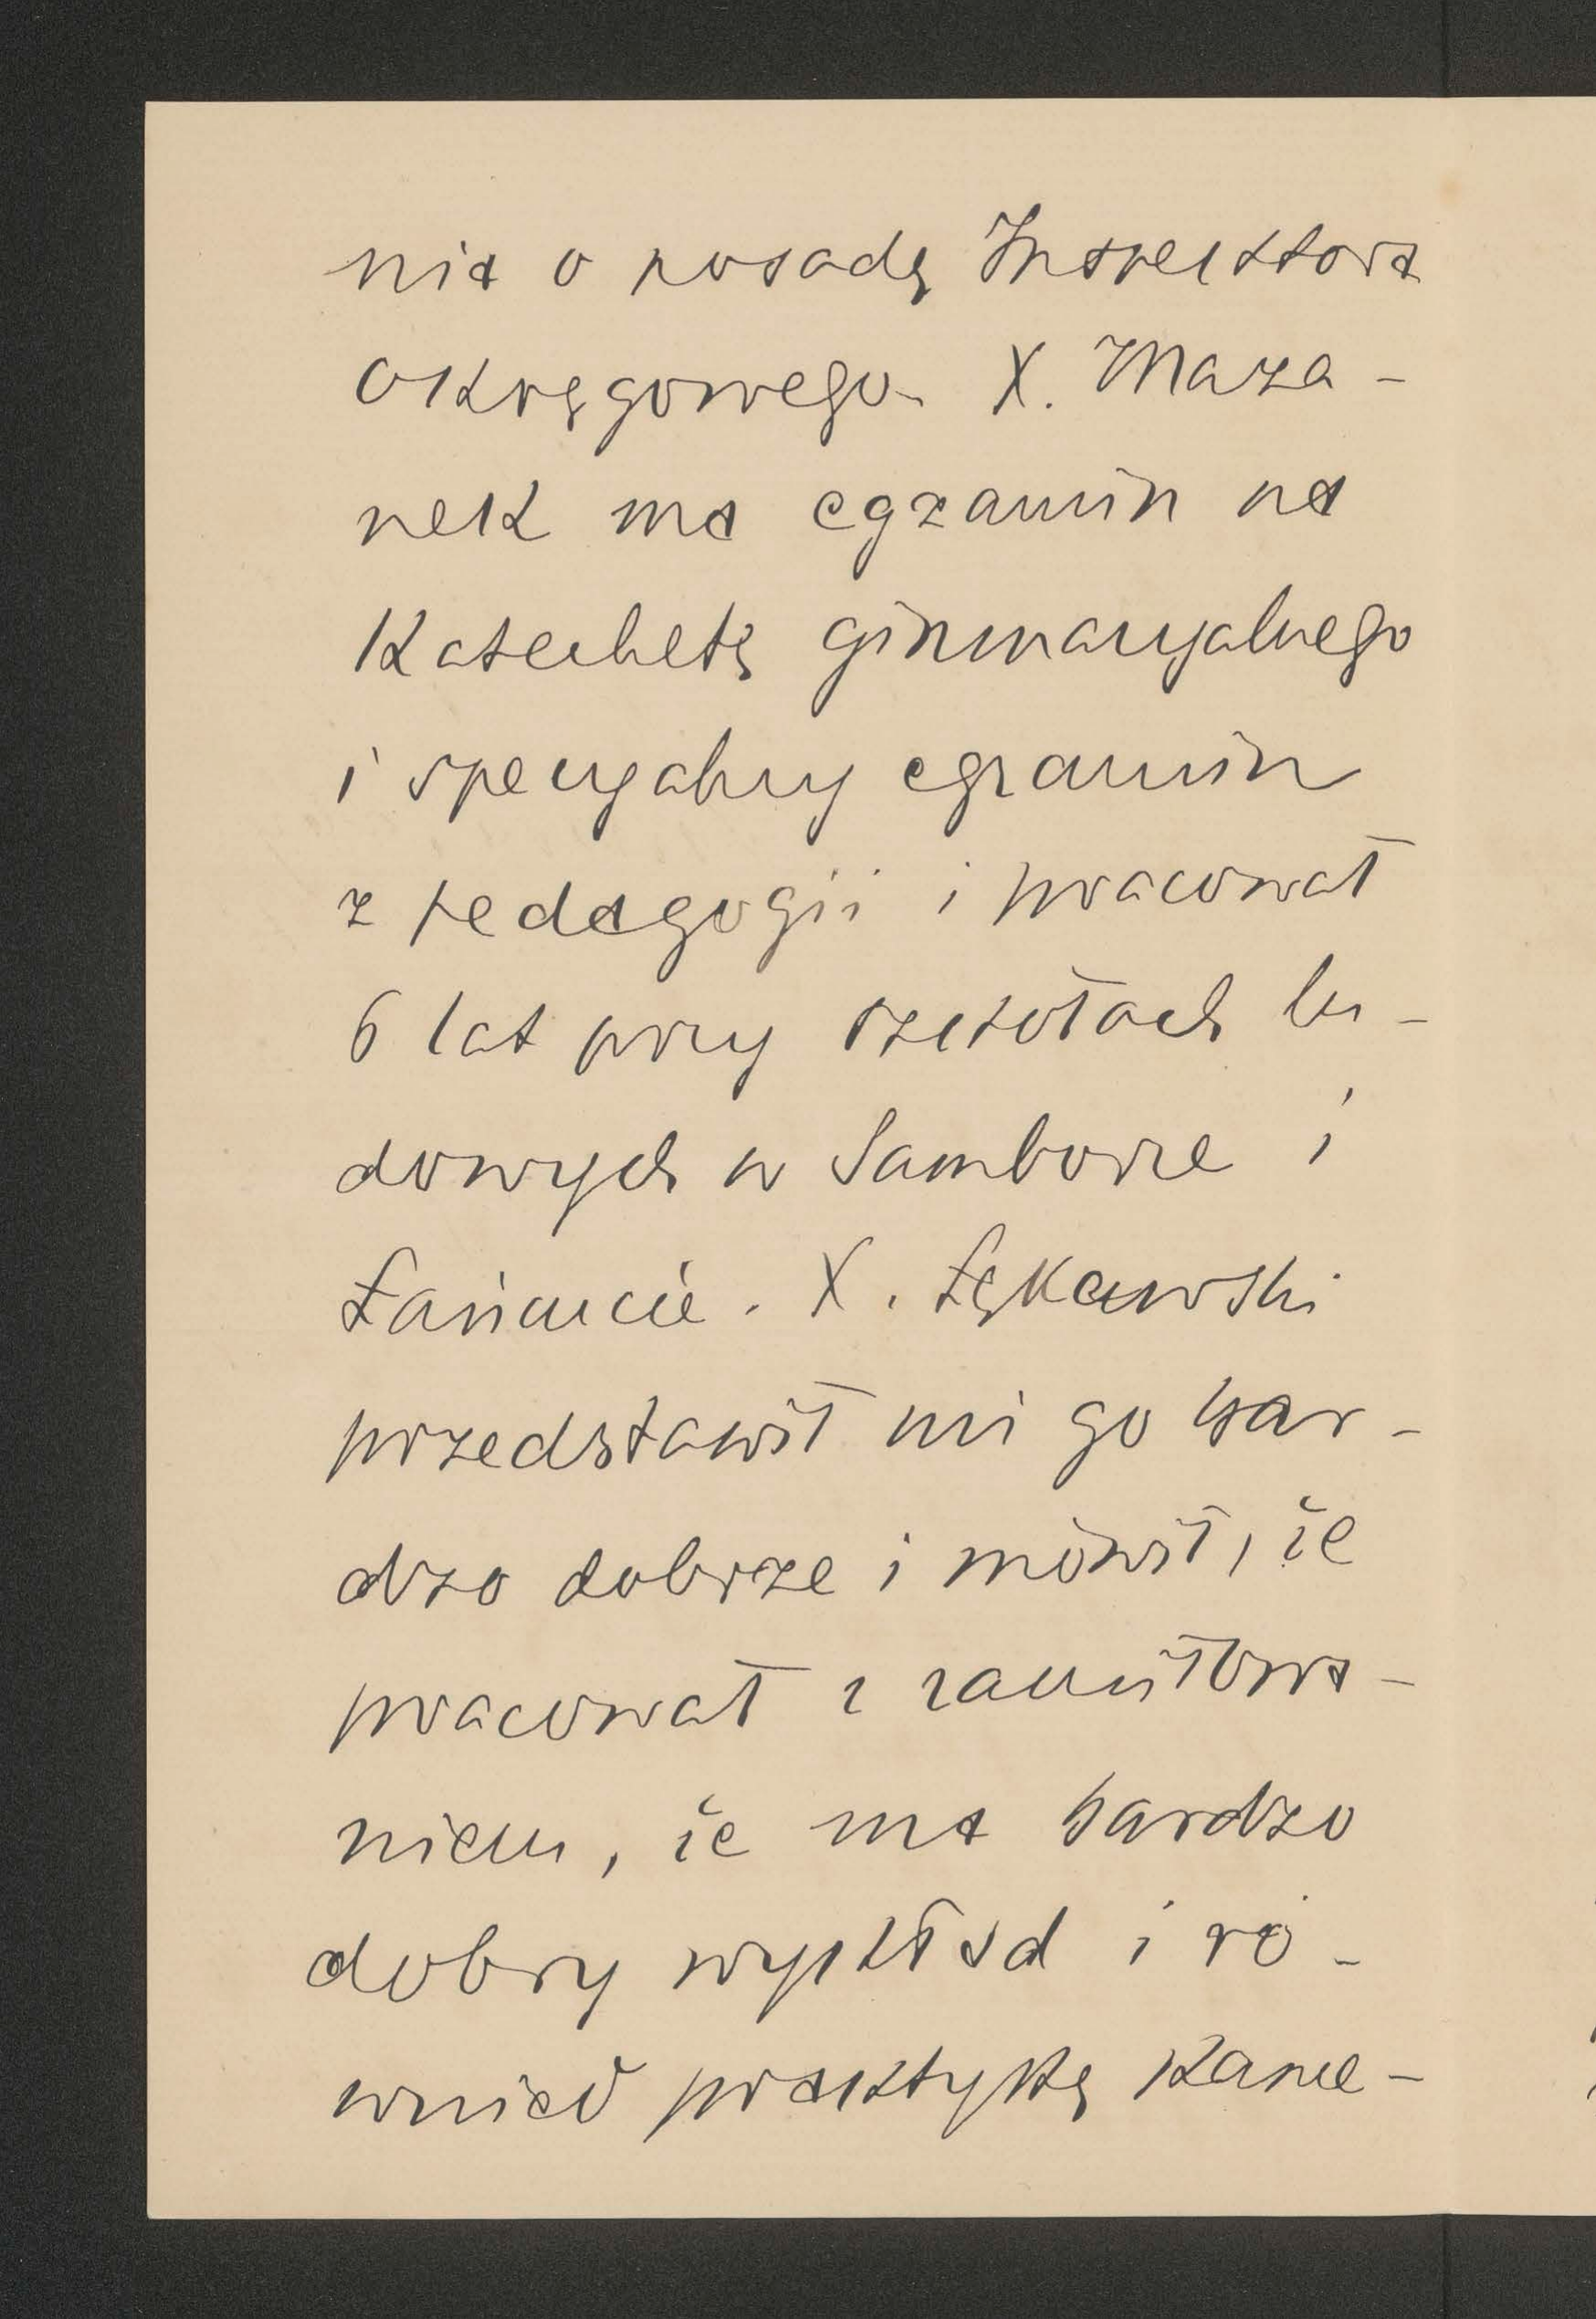 nia o posadę Inspektora
Okręgowego. X. Maza-
nek ma egzamin na
Katechetę gimnazyalnego
i specyalny egzamin
z pedagogii i pracował
6 lat przy szkołach lu-
dowych w Samborze i
Łańcucie. X. Łękawski
przedstawił mi go bar-
dzo dobrze i mówił, że
pracował z zamiłowa-
niem, że ma bardzo
dobry wykład i ró-
wnież praktykę kance-